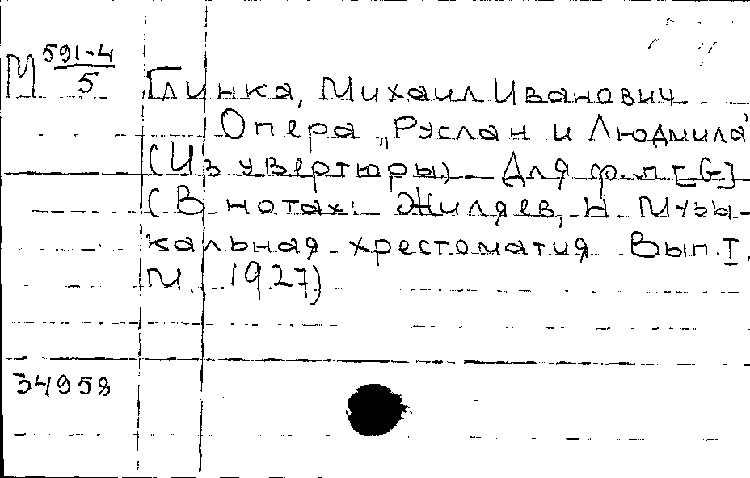 М 591-4/5
Глинка, Михаил Иванович
Опера „Руслан и Людмила"
(Из увертюры) Для ф.п. [G]
(В нотах: Жиляев, Н. Музы-
кальная хрестоматия Вып. I.
М. 1927)
34958